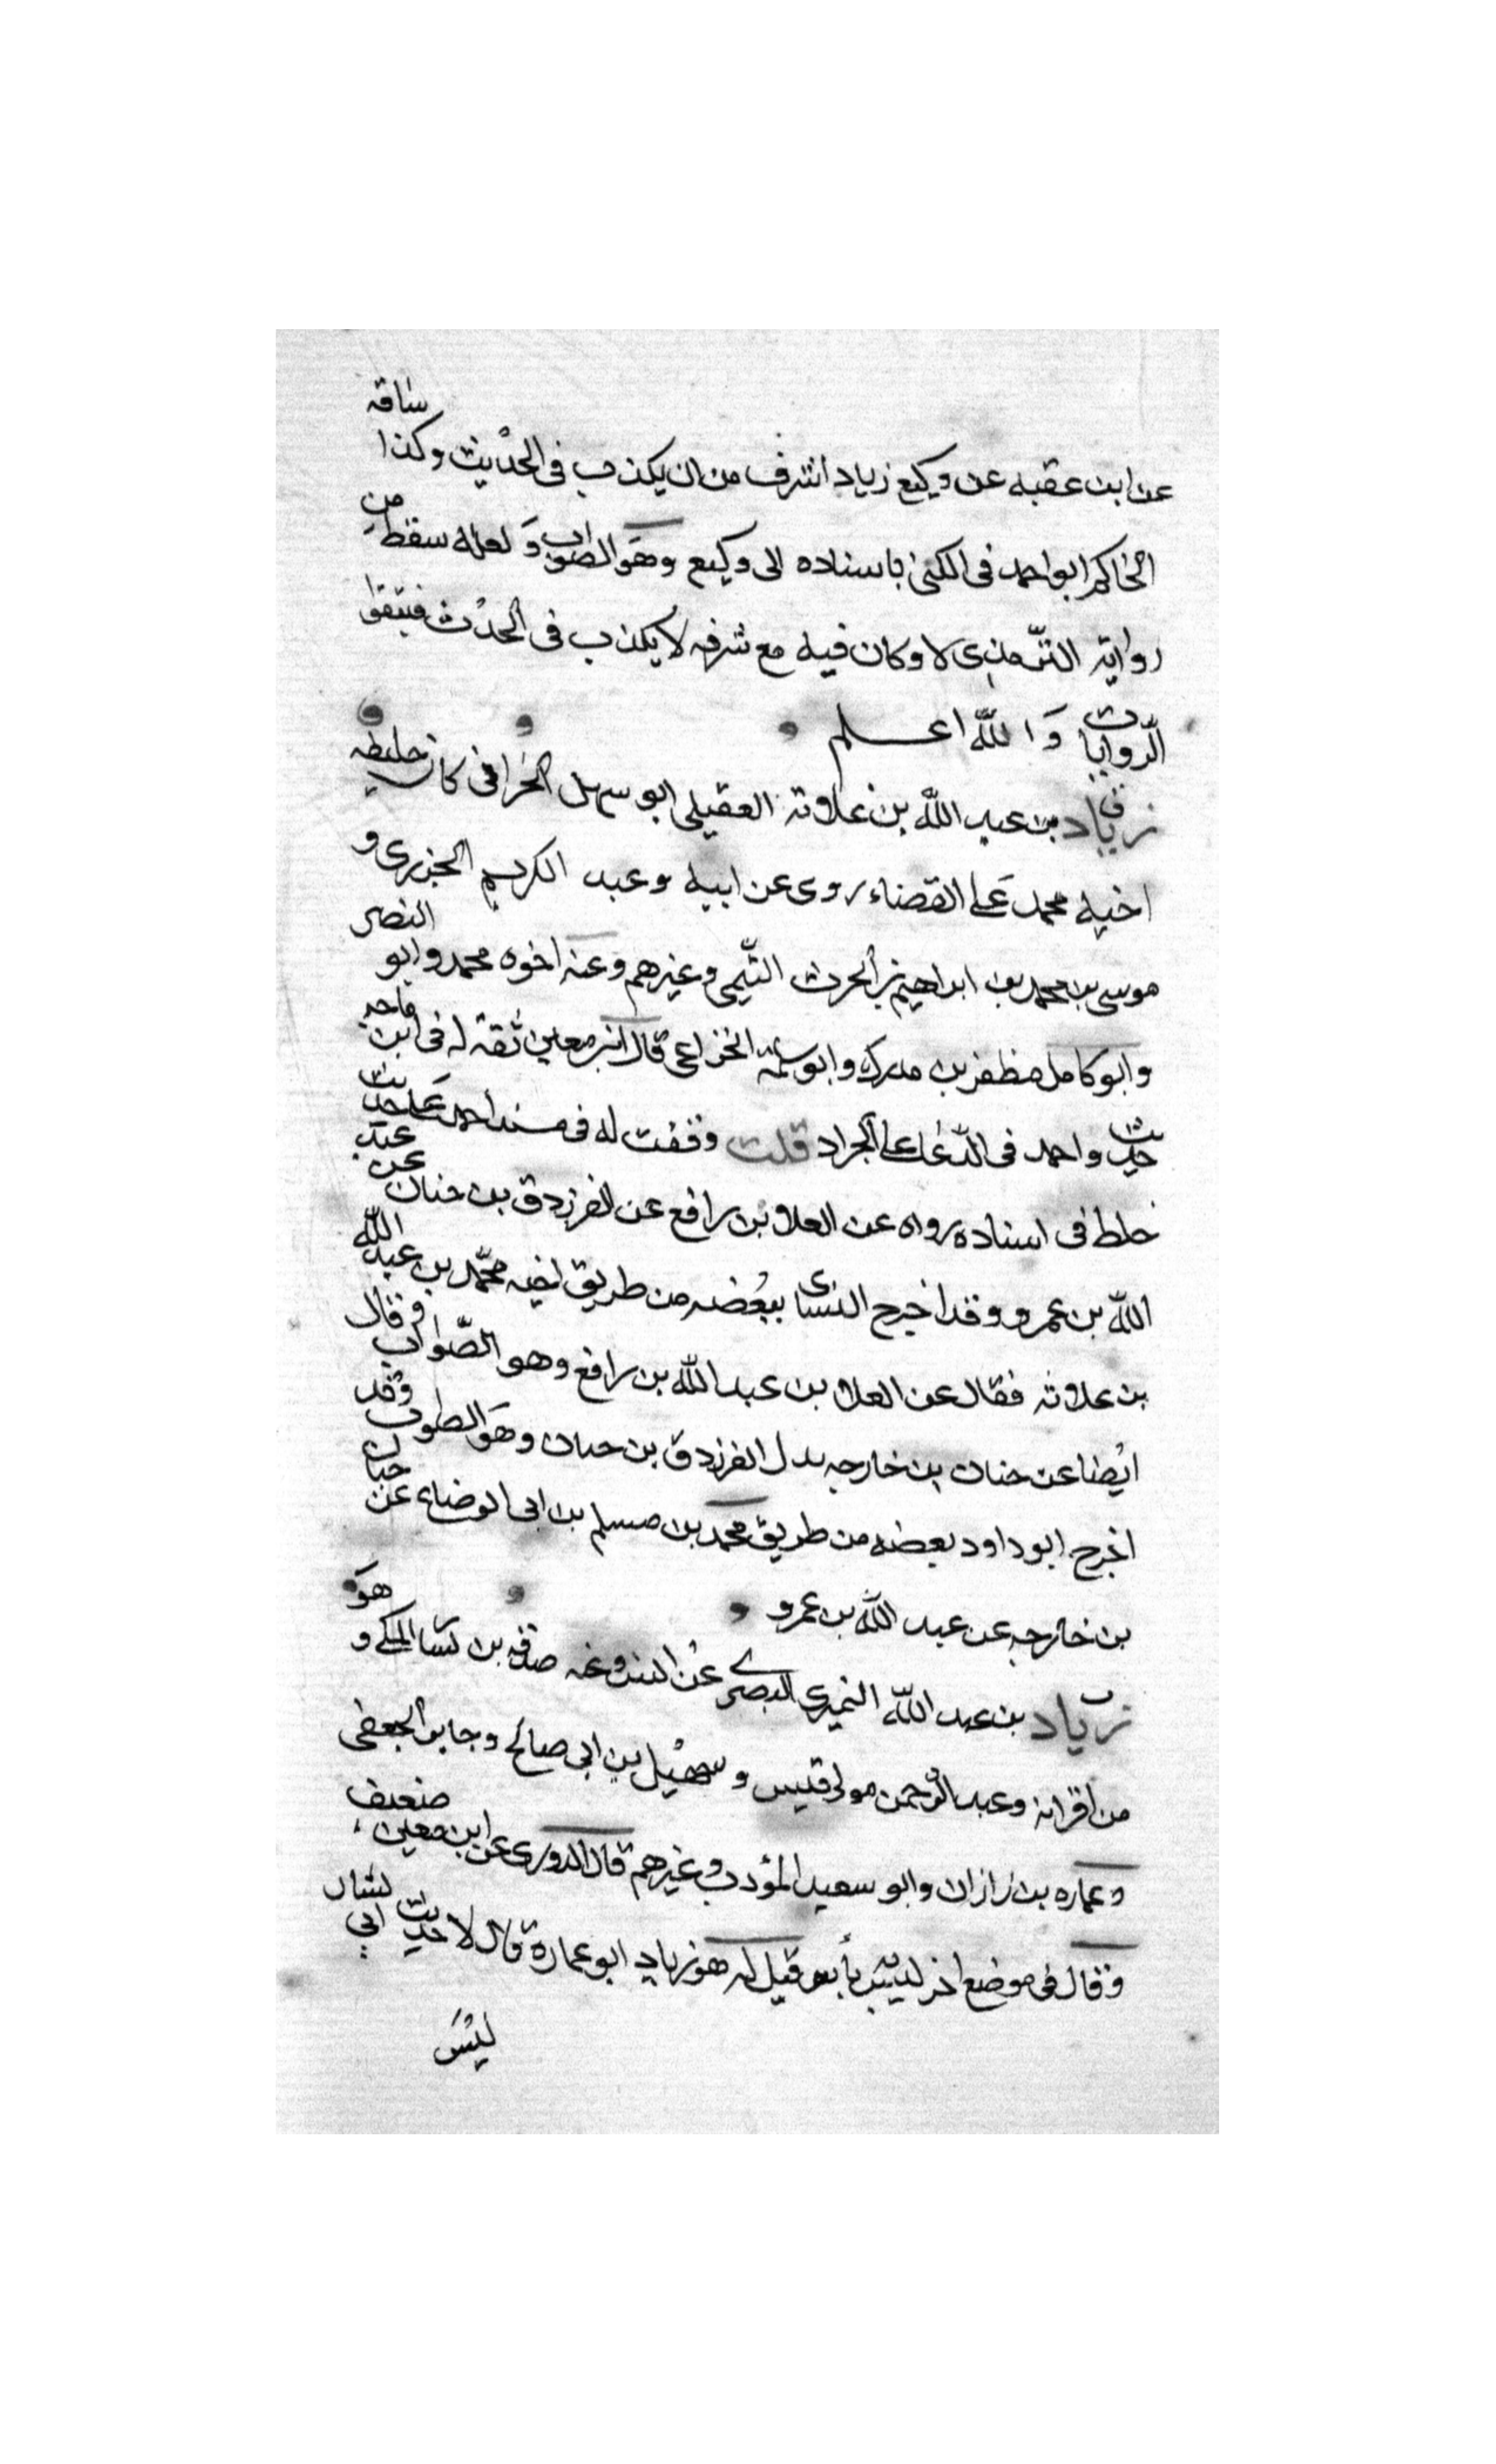 عن ابن عقبه عن وكيع زياد اشرف من ان يكذب فى الحديث وكذا ساقه
الحاكم ابو احمد فى الكنى باسناده الى وكيع وهو الصواب ولعله سقط من
رواية الترمذى لا وكان فيه مع شرفه لا يكذب فى الحدث فيتقوا
الروايات والله اعلم
زياد بن عبد الله بن علاثه العقيلى ابو سهل الحرانى كان خليفه
اخيه محمد على القضاء روى عن ابيه وعبد الكريم الجزرى و
موسى بن محمد بن ابراهيم بن الحرث التيمى وغيرهم وعنه اخوه محمد وابو النصر
وابو كامل مظفر بن مدرك وابو سلمة الخزاعى قال ابن معين ثقة له فى ابن ماجه
حديث واحد فى الدعا على الجراد قلت وقفت له فى مسند احمد على حديث
خلط فى اسناده رواه عن العلا بن رافع عن الفرزدق بن حنان عن عبد
الله بن عمرو وقد اخرج النساى بعضه من طريق اخيه محمد بن عبد الله
بن علاثه فقال عن العلا بن عبد الله بن رافع وهو الصواب وقال
ايضا عن حنان بن خارجه بدل الفرزدق بن حنان وهو الطوب وقد
اخرج ابو داود بعضه من طريق محمد بن مسلم بن ابى الوضاء عن حنان
بن خارجه عن عبد الله بن عمرو
زياد بن عبد الله النميرى البصرى عن انس وعنه صدقه بن يسا المكى وهو
من اقرانه وعبد الرحمن مولى قيس وسهيل بن ابى صالح وجابر الجعفى
وعماره بن زاذان وابو سعيد المؤدب وغيرهم قال الدورى عن ابن معين ضعيف
وقال فى موضع اخر ليس به بأس قيل له هو زياد ابو عمارة قال لا حديث ابى
ليس